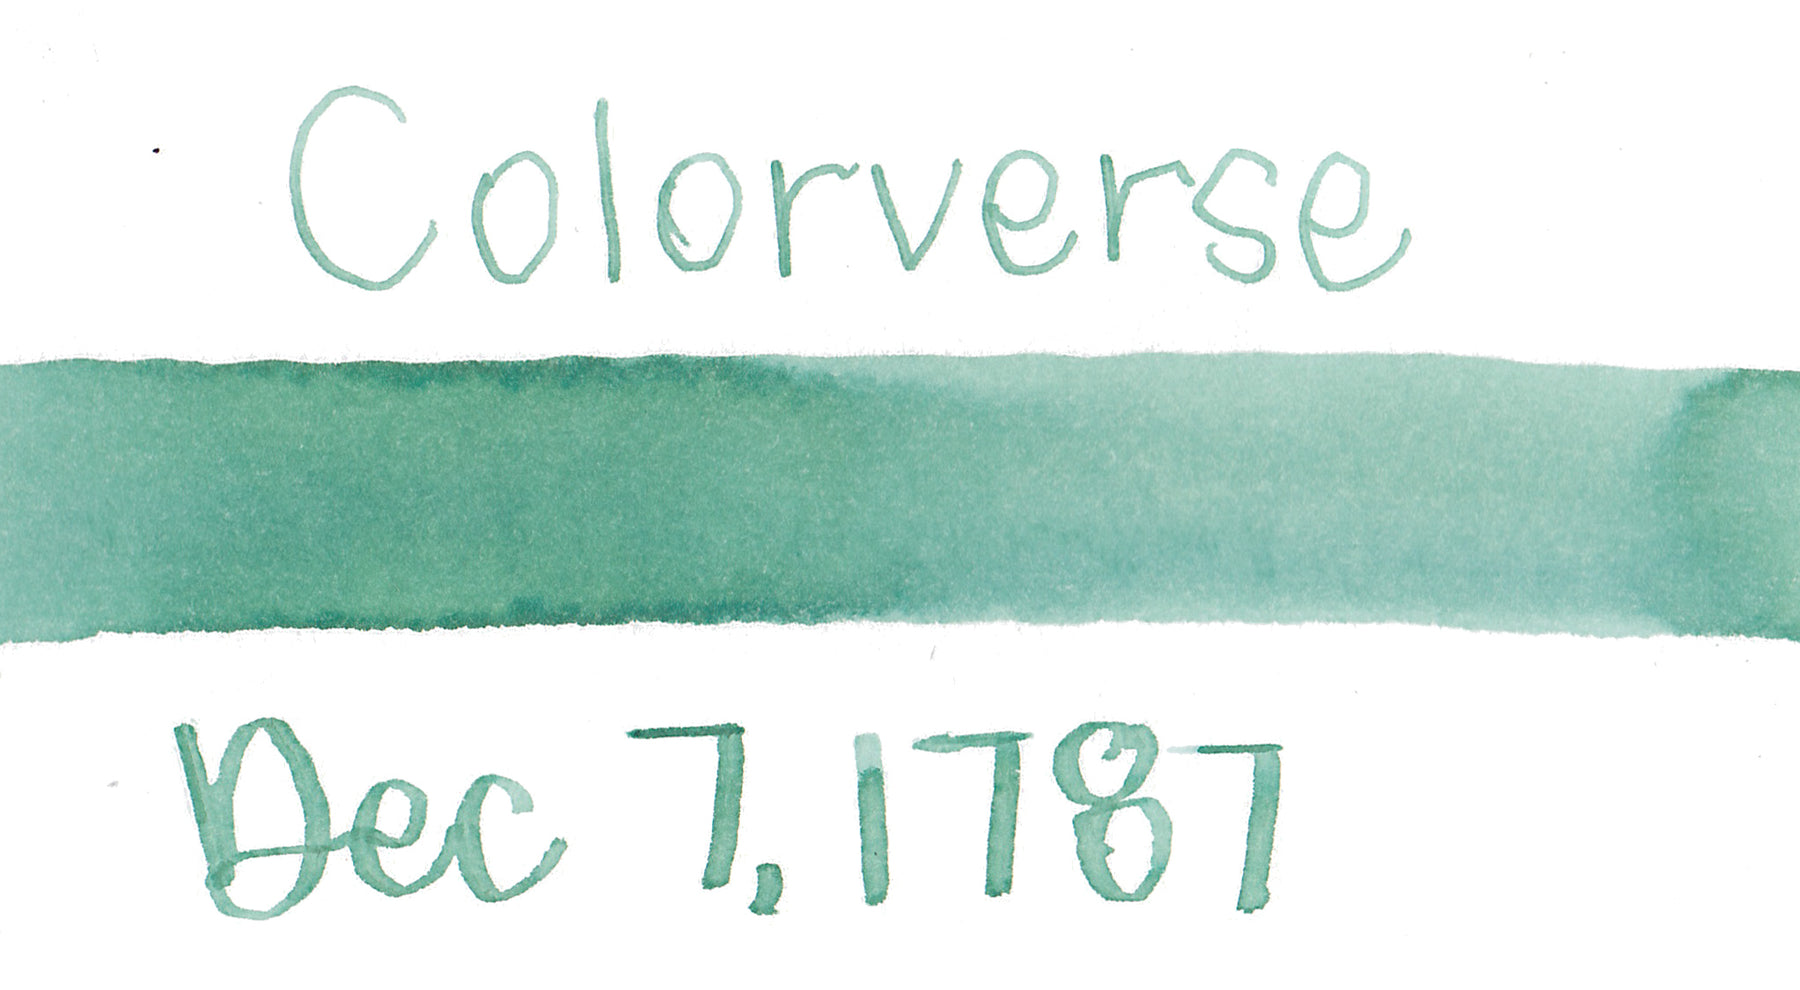 Colorverse
Dec 7, 1787